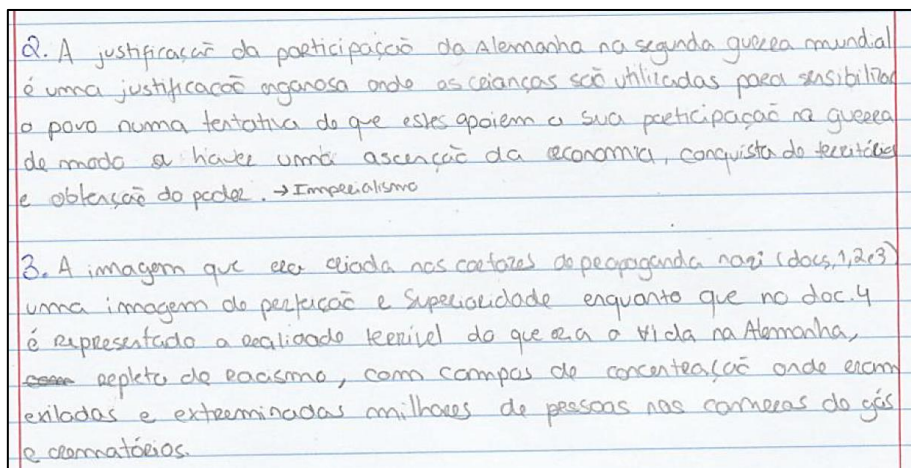 2. A justificação da participação da Alemanha na segunda guerra mundial
é uma justificação enganosa onde as crianças são utilizadas para sensibilizar
o povo numa tentativa de que estes apoiem a sua participação na guerra
de modo a haver uma ascenção da economia, conquista de territórios
e obtenção do poder. → Imperialismo
3. A imagem que era criada nos cartazes de propaganda nazi (docs, 1, 2 e 3)
uma imagem de perfeição e superioridade enquanto que no doc. 4
é representado a realidade terrível do que era a vida na Alemanha,
repleta de racismo, com campos de concentração onde eram
exiladas e exterminadas milhares de pessoas nas camaras de gás
e crematórios.